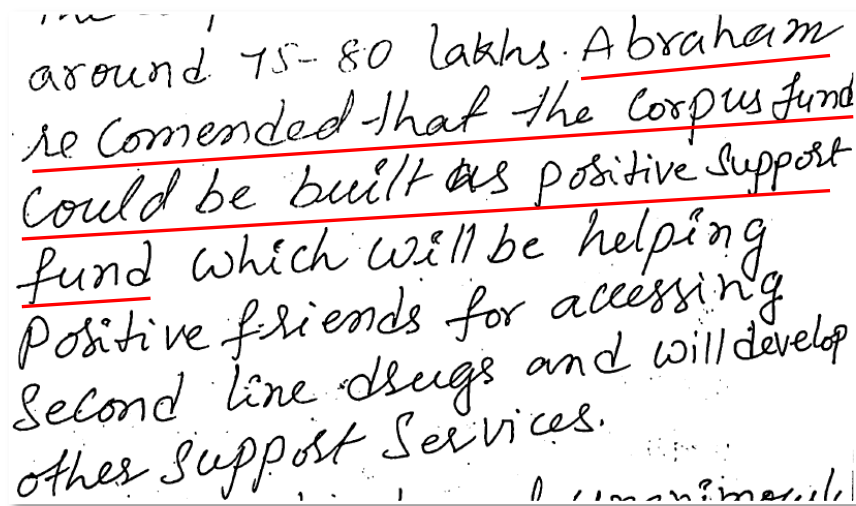 around 75-80 lakhs. Abraham
recomended that the corpus fund
could be built as positive support
fund which will be helping
positive friends for accessing
second line drugs and will develop
other support services.
unanimously